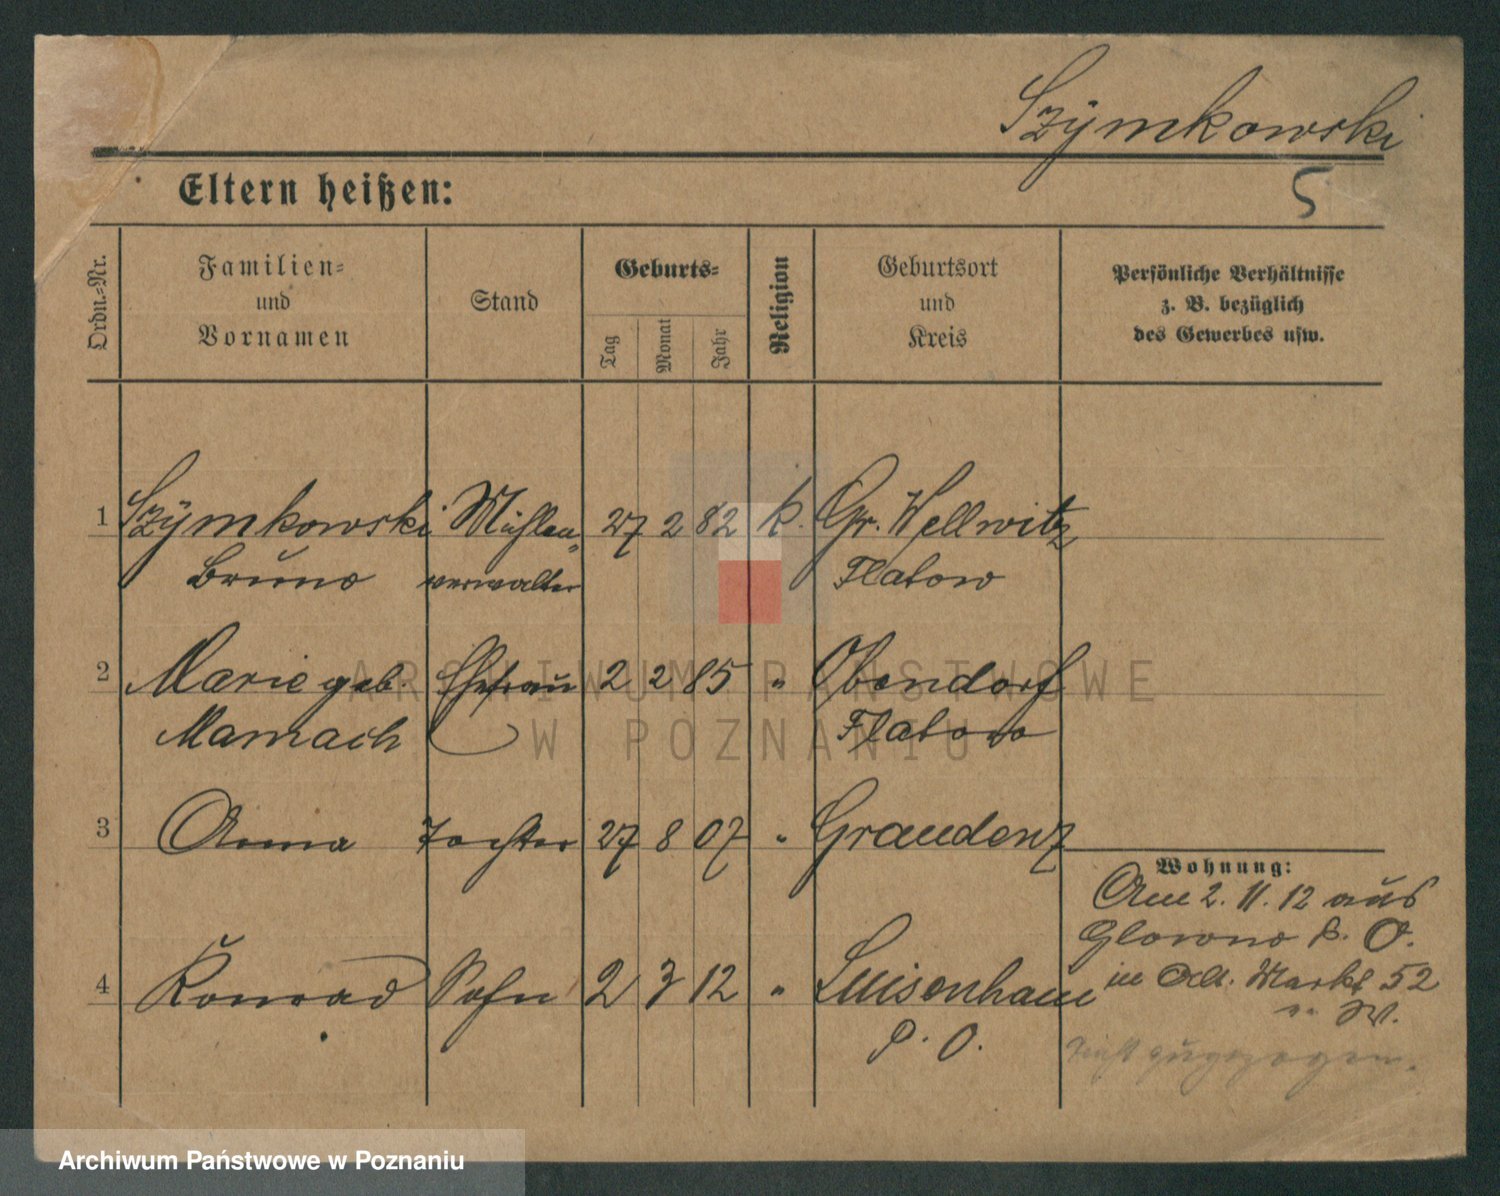 Szÿmkowski
5
Eltern heißen:
Ordn.-Nr.
Familien-
und
Vornamen
Stand
Geburts-
Tag
Monat
Jahr
Religion
Geburtsort
und
Kreis
Persönliche Verhältnisse
z. B. bezüglich
des Gewerbes usw.
1 Szÿmkowski Mühlen- 27 2 82 k. Gr. Wellwitz
Bruno verwalter Flatow
2 Marie geb. Ehefrau 2 2 85 " Obendorf
Mamach Flatow
3 Anna Tochter 27 8 07 " Graudenz
Wohnung:
Am 2. 11. 12 aus
Glowno P. O.
4 Konrad Sohn 2 3 12 " Luisenhain
in Alt. Markt 52
P. O.
zugezogen.
ARCHIWUM PAŃSTWOWE
W POZNANIU
Archiwum Państwowe w Poznaniu